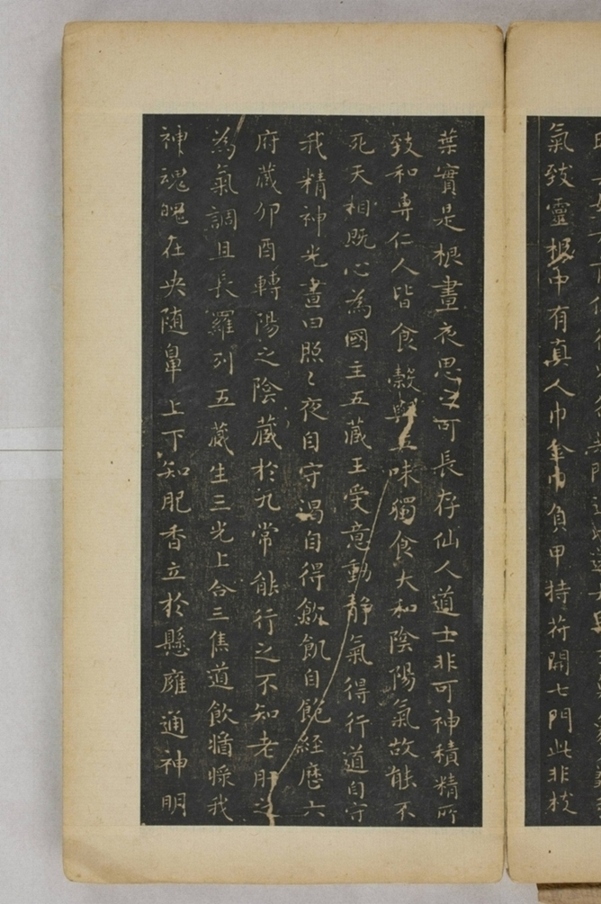 氣致靈根中有真人巾金巾負甲持苻開七門此非枝
葉實是根晝夜思之可長存仙人道士非可神積精所
致和專仁人皆食榖與五味獨食大和陰陽氣故能不
死天相既心為國主五藏王受意動静氣得行道自守
我精神光晝日照〻夜自守渴自得飲飢自飽經歷六
府藏卯酉轉陽之陰藏於九常能行之不知老肝之
為氣調且長羅列五藏生三光上合三焦道飲醬㯢我
神魂魄在央随鼻上下知肥香立於懸廱通神明